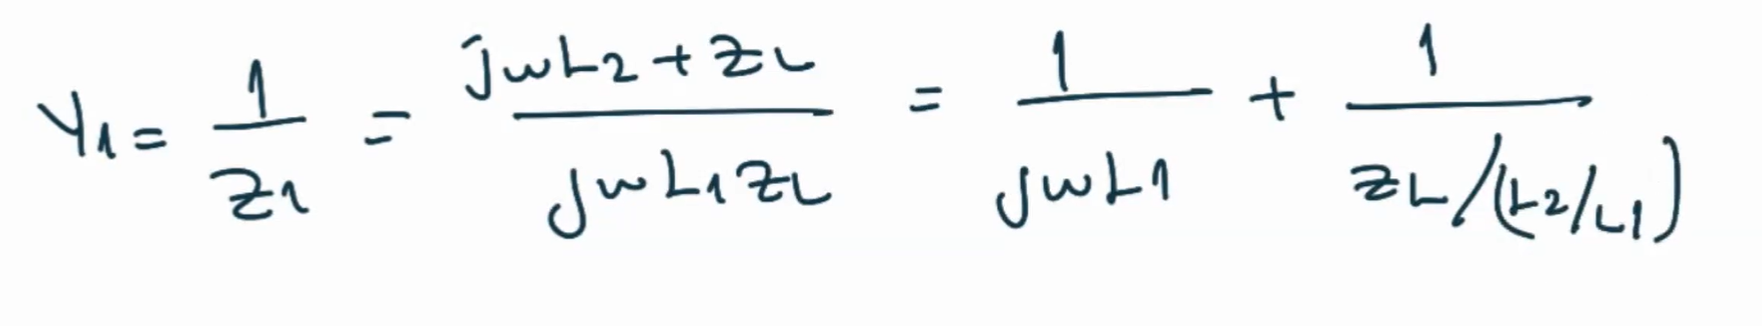 Y1 = 1/Z1 = (jwL2 + ZL)/(jwL1ZL) = 1/(jwL1) + 1/(ZL/(L2/L1))